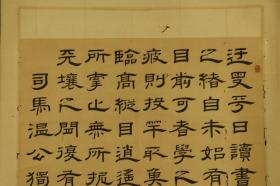 迂叟平日讀書
之緒自未始有
目前可者學之
疲則投竿取魚
臨高縱目逍遙
所牽止無所柅
天壤之間復有
司馬溫公獨